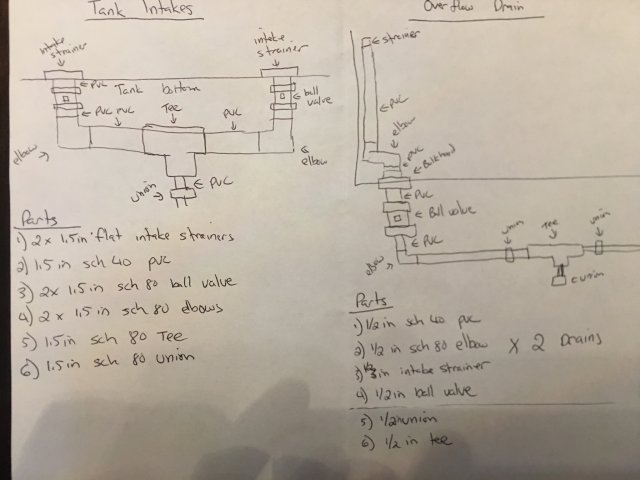 Tank Intakes
intake
strainer
intake
strainer
PVC
Tank bottom
ball
valve
PVC PVC
Tee
PVC
elbow
elbow
union
PVC
Parts
1) 2x 1.5in flat intake strainers
2) 1.5 in sch 40 pvc
3) 2x 1.5 in sch 80 ball valve
4) 2 x 1.5 in sch 80 elbows
5) 1.5 in sch 80 Tee
6) 1.5 in sch 80 union
Overflow Drain
strainer
PVC
elbow
PVC
Bulkhead
PVC
Ball valve
PVC
elbow
union
Tee
union
union
Parts
1) 1/2 in sch 40 pvc
2) 1/2 in sch 80 elbow
X 2 Drains
3) in intake strainer
4) 1/2 in ball valve
5) 1/2in union
6) 1/2 in tee